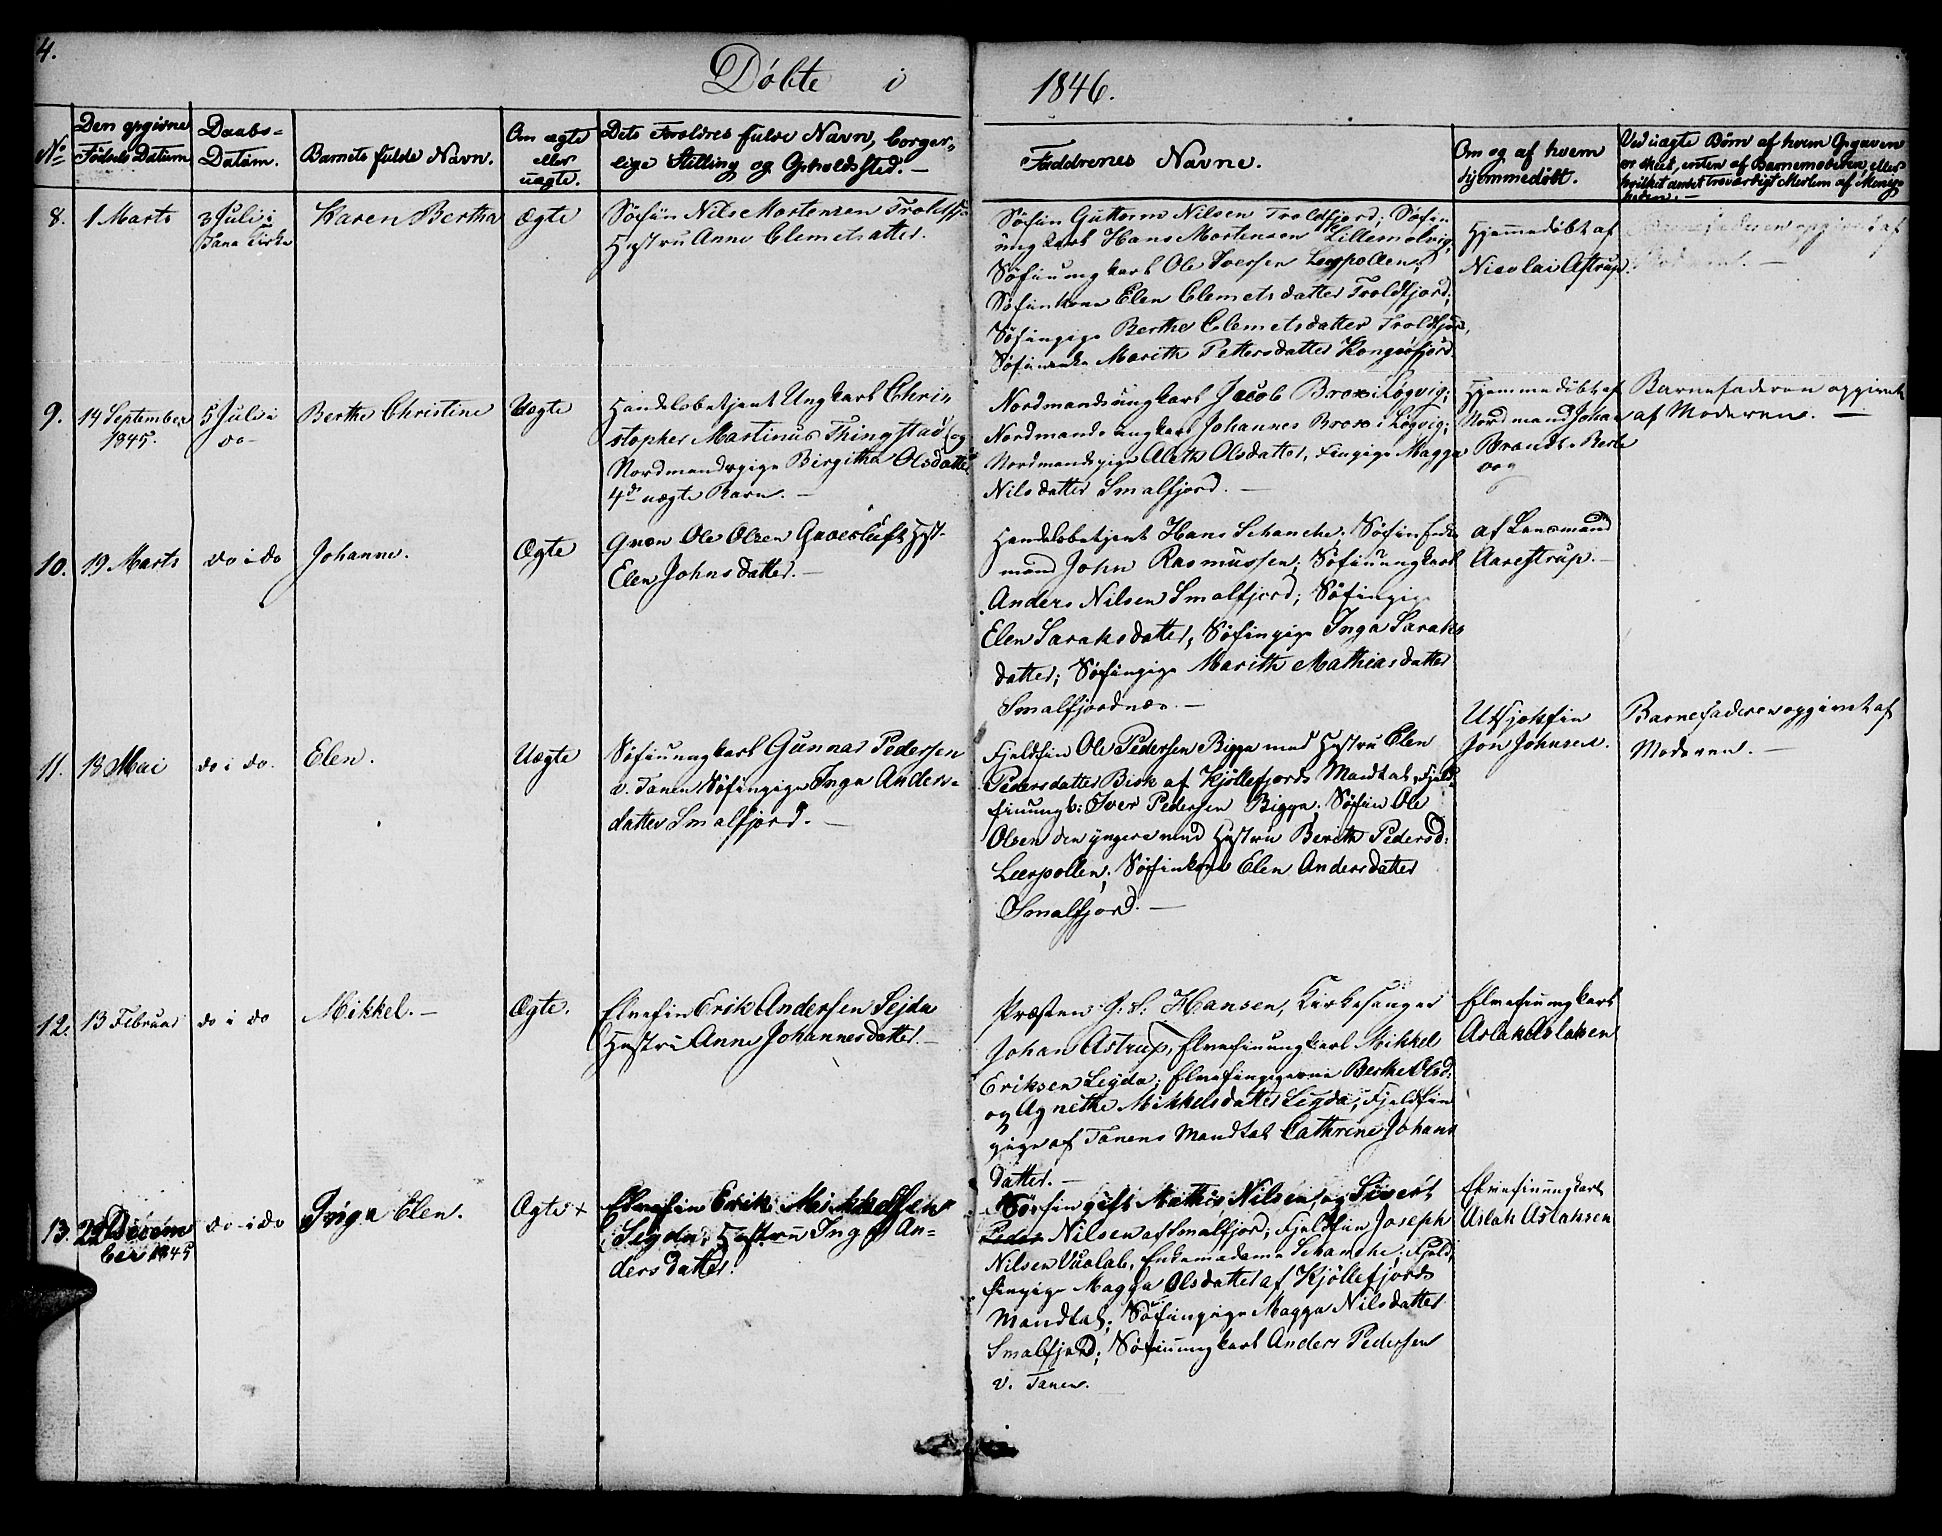 4.
Døbte i 1846.
No
Den opgivne
Fødsels Datum
Daabs-
Datum.
Barnets fulde Navn.
Om ægte
eller
uægte.
Dets Forældres fulde Navn, borger-
lige Stilling og Opholdssted. -
Faddrenes Navne.
Om og af hvem
hjemmedøbt.
Ved uægte Børn af hvem Opgaven
er skeet, enten af Barnemoderen, eller
hvilket andet troværdigt Medlem af Menig-
heden. -
8.
1 Marts
3 Juli i
Tana Kirke
Karen Bertha
Ægte
Søfin Nils Mortensen Troldfj:
Hustru Anne Clemetsdatter.
Søfin Guttorm Nilsen Troldfjord; Søfin
ungkarl Hans Mortensen Lillemolvig;
Søfinungkarl Ole Iversen Leerpollen;
Søfinkone Elen Clemetsdatter Troldfjord;
Søfinpige Berthe Clemetsdatter Troldfjord,
Søfinenke Marith Pettersdatter Kongsfjord.
Hjemmedøbt af
Nicolai Astrup.
Barnefaderen opgivet af
Moderen. -
9.
14 September
1845.
5 Juli i
do-
Berthe Christine
Uægte
Handelsbetjent Ungkarl Chri-
stopher Martinus Thingstad (og
Nordmandspige Birgitha Olsdatter
4de uægte Barn. -
Nordmandsungkarl Jacob Brox i Løgvig;
Nordmandsungkarl Johannes Brox i Løgvig;
Nordmandspige Aleth Olsdatter, Finpige Magga
Nilsdatter Smalfjord. -
Hjemmedøbt af
Nordmand Johan
Brandt
Barnefaderen opgivet
af Moderen. -
10.
19 Marts
do i do
Johanne.
Ægte
Qvæn Ole Olsen Hust-
Elen Johnsdatter. -
Handelsbetjent Hans Schanche; Søfin Enke-
mand John Rasmussen; Søfinungkarl
Anders Nilsen Smalfjord; Søfinpige
Elen Saraksdatter, Søfinpige Inga Saraks
datter; Søfinpige Marith Mathiasdatter
Smalfjordnæs. -
af Lensmand
Aarestrup. -
11.
13 Mai
do i do.
Elen.
Uægte
Søfinungkarl Gunnar Pedersen
v. Tanen Søfinpige Inga Anders-
datter Smalfjord. -
Fjeldfin Ole Pedersen Bigga med Hustru Elen
Pedersdatter Bisk af Kjøllefjords Mandtal, Fjeld-
finungk: Iver Pedersen Bigga; Søfin Ole
Olsen den yngere med Hustru Berith Pedersd:
Leerpollen; Søfinkone Elen Andersdatter
Smalfjord. -
Utsjokfin
Jon Johnsen.
Barnefaderen opgivet af
Moderen. -
12.
13 Februar
do i do
Mikkel. -
Ægte.
Elvefin Erik Andersen Sejda
Hustru Anne Johannesdatter. -
Præsten Hansen, Kirkesanger
Johan Astrup, Elvefinungkarl Mikkel
Eriksen Seyda; Elvefinpigerne Berthe Olsd:
og Agnethe Mikkelsdatter Seyda; Fjeldfin
pige af Tanens Mandtal Cathrine Johans
datter. -
Elvefinungkarl
Aslak Aslaksen
13.
24 Decem
ber 1845
do i do
Inga Elen.
Ægte +
Elvefin Erik Mikkelsen
Seyda, Hustru Inga An-
dersdatter.
Søfin gift Mathis Nilsen, og Sivert
Peder Nilsen af Smalfjord; Fjeldfin Joseph
Nilsen Vuolab, Enkemadame Schanche; Fjeld-
finpige Magga Olsdatter af Kjøllefjords
Mandtal; Søfinpige Magga Nilsdatter
Smalfjord; Søfinungkarl Anders Pedersen
v. Tanen.
Elvefinungkarl
Aslak Aslaksen